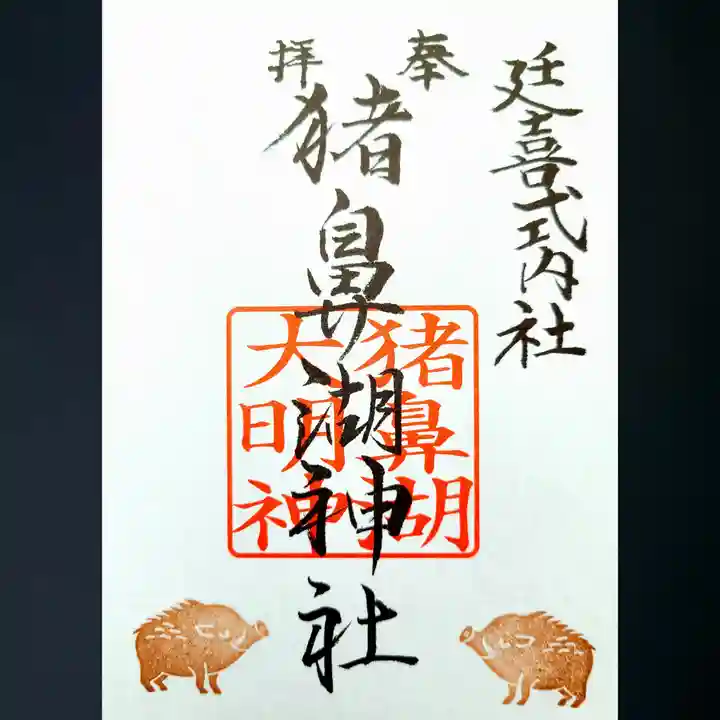 延喜式内社
奉拝
猪鼻湖神社
猪鼻湖
大明神